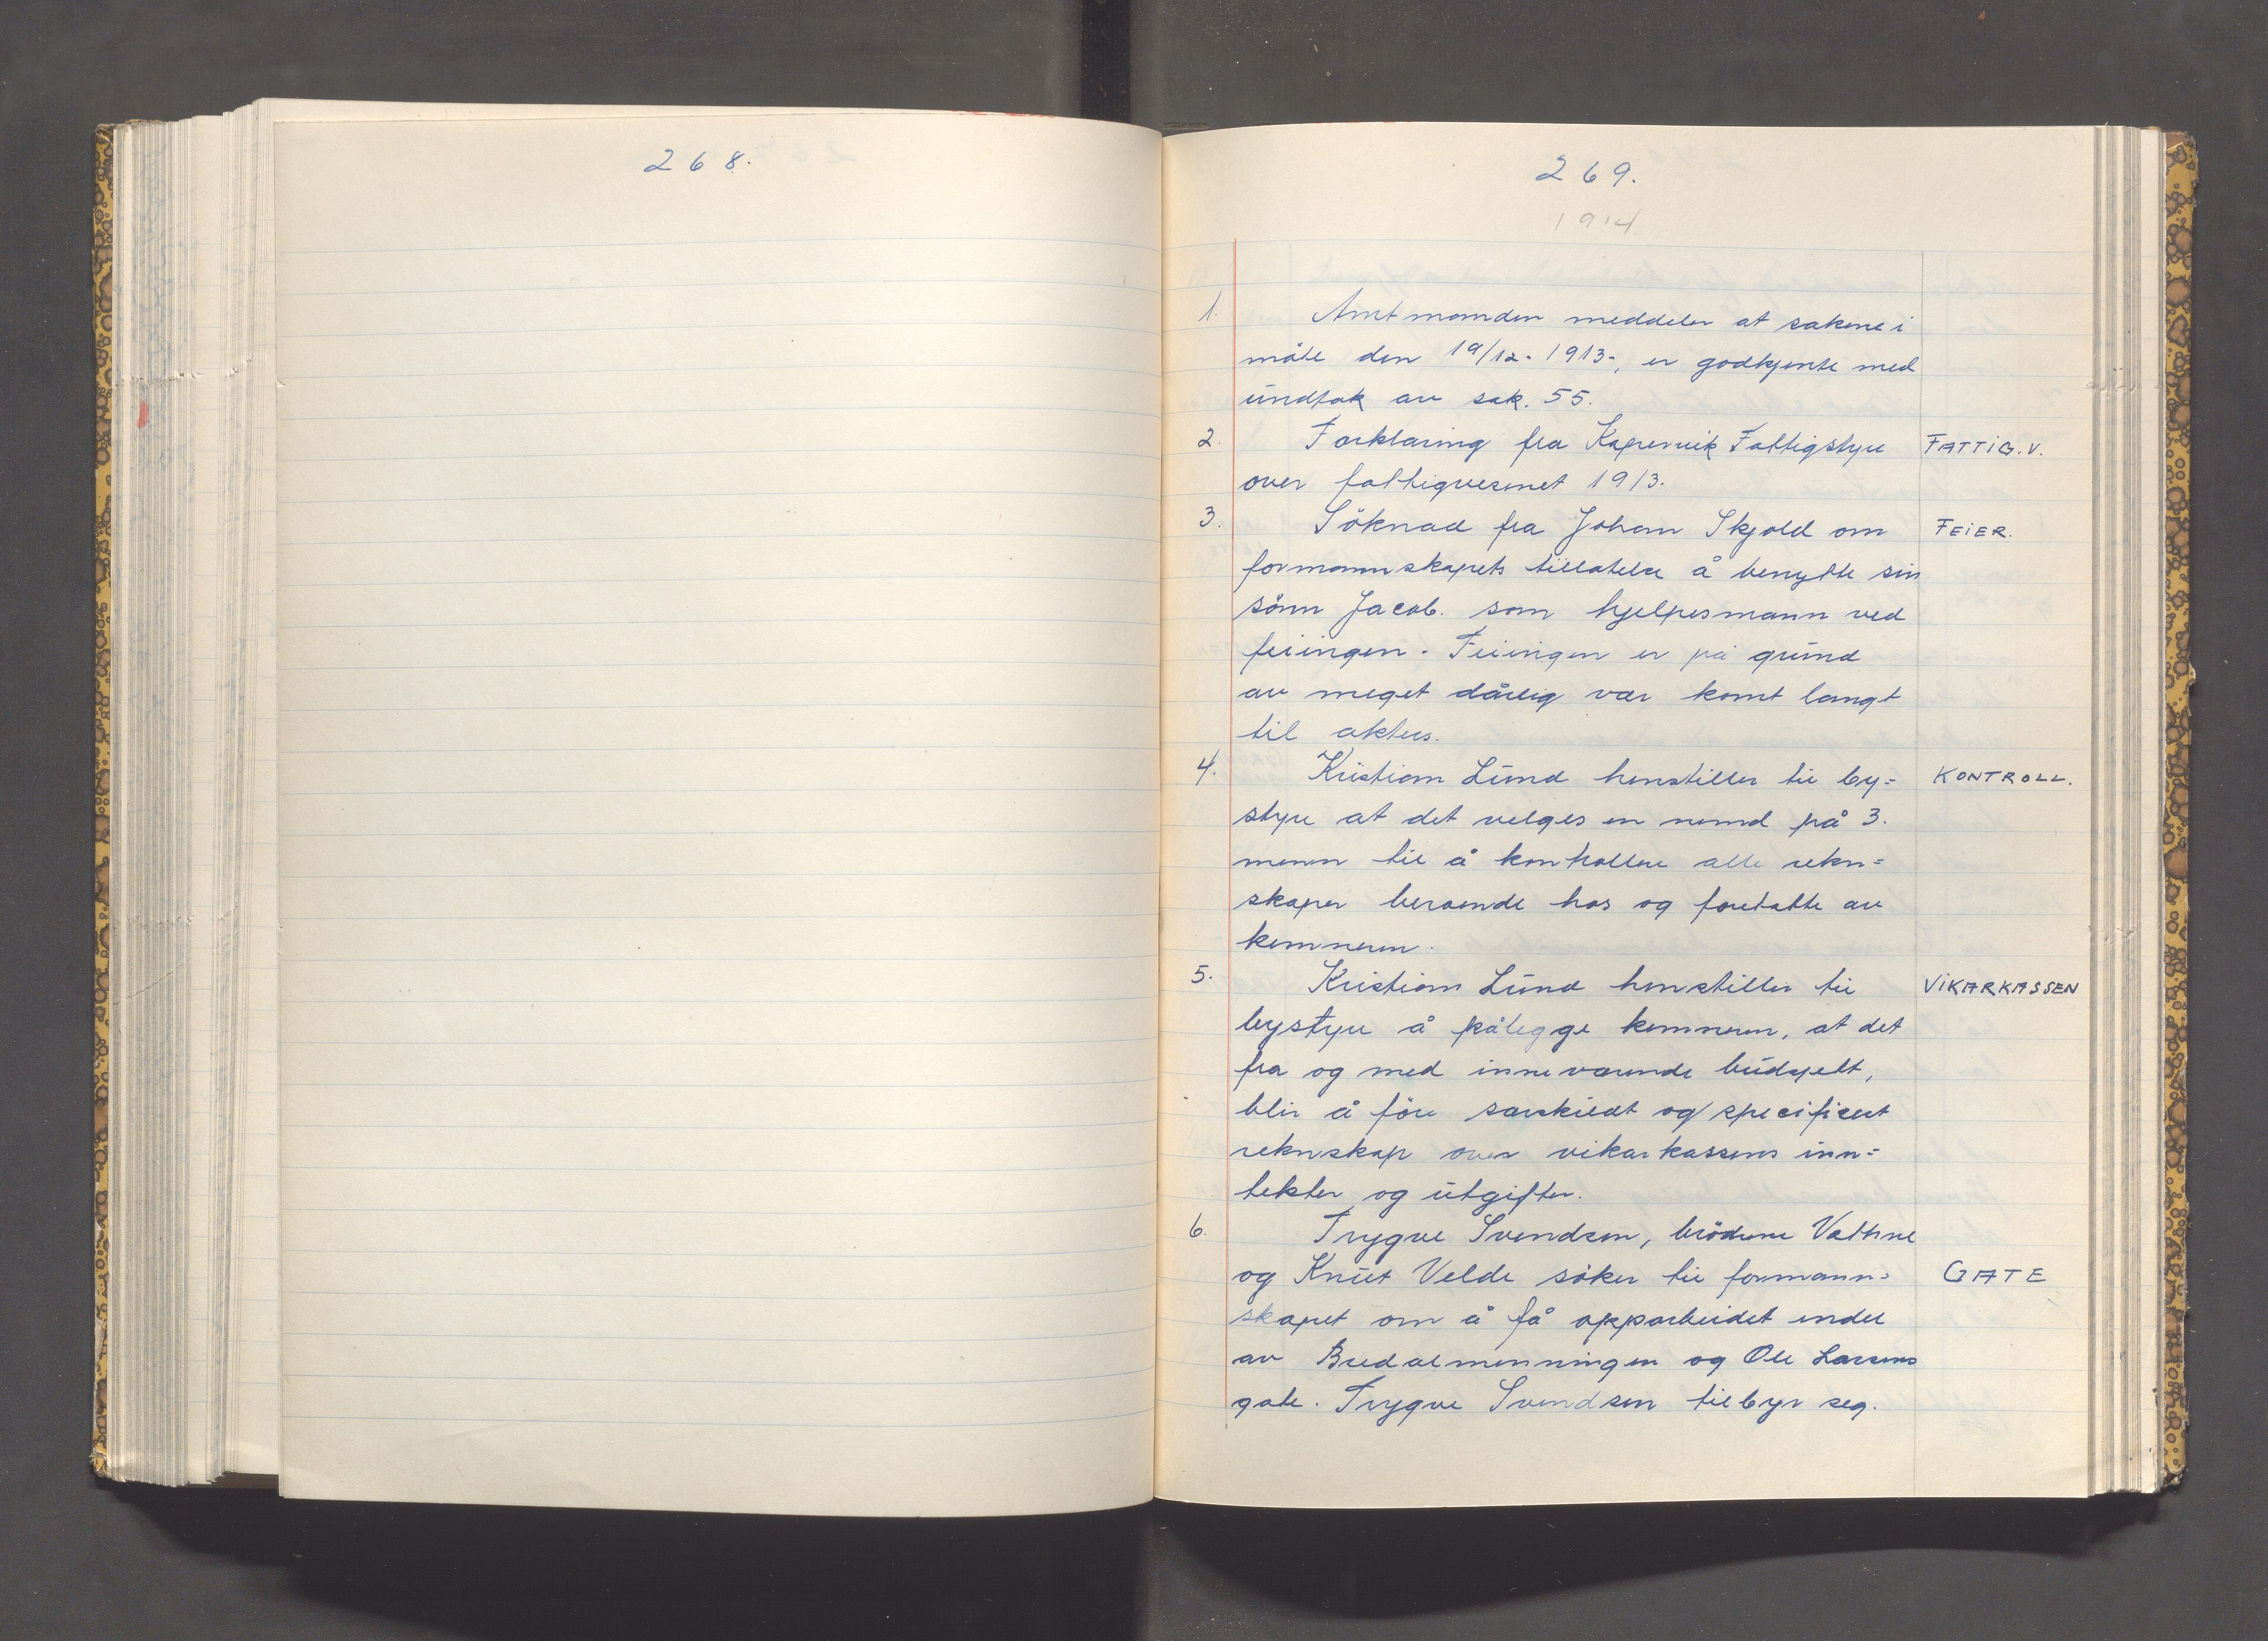 268.
269.
1914
1. Amtmanden meddeler at sakene i
møte den 19/12-1913-, er godkjente med
undtak av sak. 55.
2. Forklaring fra Kopervik Fattigstyre FATTIG.V.
over fattigvesenet 1913.
3. Söknad fra Johan Skjold om FEIER.
formannskapets tillatelse å benytte sin
sönn Jacob. som hjelpesmann ved
feiingen. Feiingen er på grund
av meget dårlig vær komt langt
til akters.
4. Kristian Lund henstiller til by= KONTROLL.
styre at det velges en nemnd på 3.
menn til å kontrollere alle rekn=
skaper beroende hos og foretatte av
kemneren.
5. Kristian Lund henstiller til VIKARKASSEN
bystyre å pålegge kemneren, at det
fra og med inneværende budsjett,
blir å före særskildt og specificert
reknskap over vikarkassens inn=
tekter og utgifter.
6. Trygve Svendsen, brödrene Vathne
og Knut Velde söker til formann= GATE
skapet om å få opparbeidet endel
av Bredalmenningen og Ole Larsens
gate. Trygve Svendsen tilbyr seg.